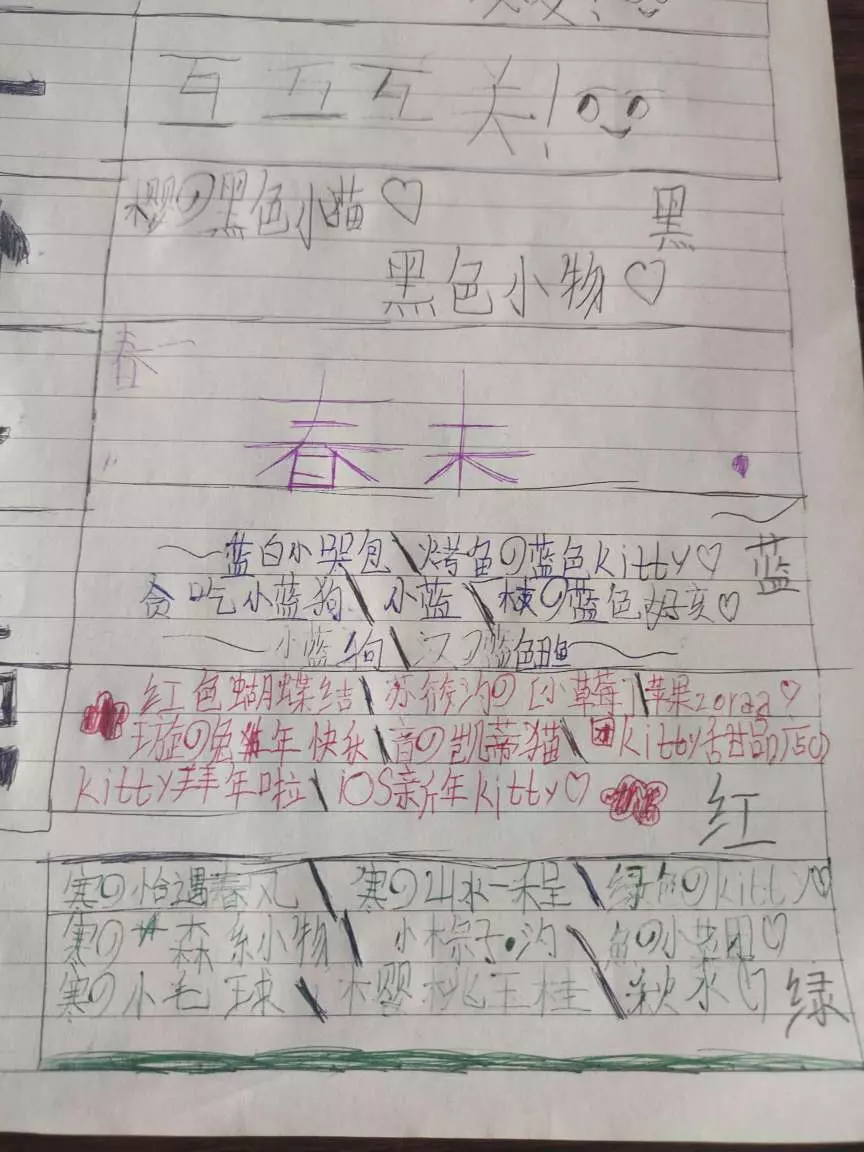 互互互关!
樱の黑色小猫♡ 黑
黑色小物♡
春一
春末
蓝白小哭包\烤鱼の蓝色kitty♡ 蓝
贪吃小蓝狗\小蓝\の蓝色
小蓝狗\
红色蝴蝶结\の[小草莓]\苹果zoraa♡
璇の兔年快乐\音の凯蒂猫\kitty甜品
kitty年啦\iOS新年kitty♡
红
寒の恰遇春风\寒の山水一程\绿色のkitty♡
寒の森系小物\小棕子·沟\
寒の小毛球\樱桃玉桂\秋水♡ 绿